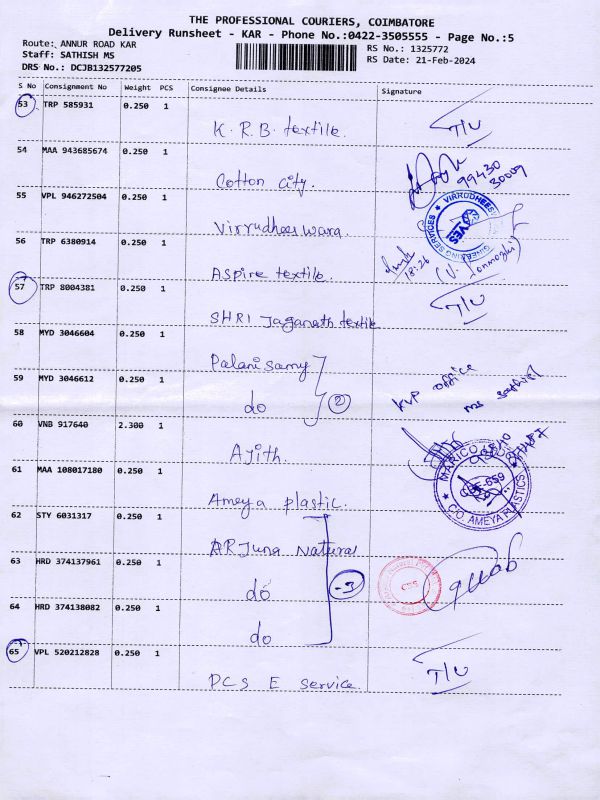 THE PROFESSIONAL COURIERS, COIMBATORE
Delivery Runsheet - KAR - Phone No.:0422-3505555 - Page No.:5
Route: ANNUR ROAD KAR
Staff: SATHISH MS
DRS No.: DCJB132577205
RS No.: 1325772
RS Date: 21-Feb-2024
S No Consignment No Weight PCS Consignee Details Signature
53 TRP 585931 0.250 1
K.R.B. textile. T/U
54 MAA 943685674 0.250 1
Cotton city. 99430 30009
55 VPL 946272504 0.250 1
Virrudheeswara.
VIRRUDHEES
56 TRP 6380914 0.250 1
Aspire textile. 18:26
57 TRP 8004381 0.250 1
SHRI Jaganath textile T/U
58 MYD 3046604 0.250 1
Palanisamy
59 MYD 3046612 0.250 1
do 2 KVP office
60 VNB 917640 2.300 1
Ajith.
61 MAA 108017180 0.250 1
Ameya plastic.
MARICO
C/O. AMEYA PLASTICS
62 STY 6031317 0.250 1
ARJuna Natural
63 HRD 374137961 0.250 1
do -3
64 HRD 374138082 0.250 1
do
65 VPL 520212828 0.250 1
PCS E service. T/U